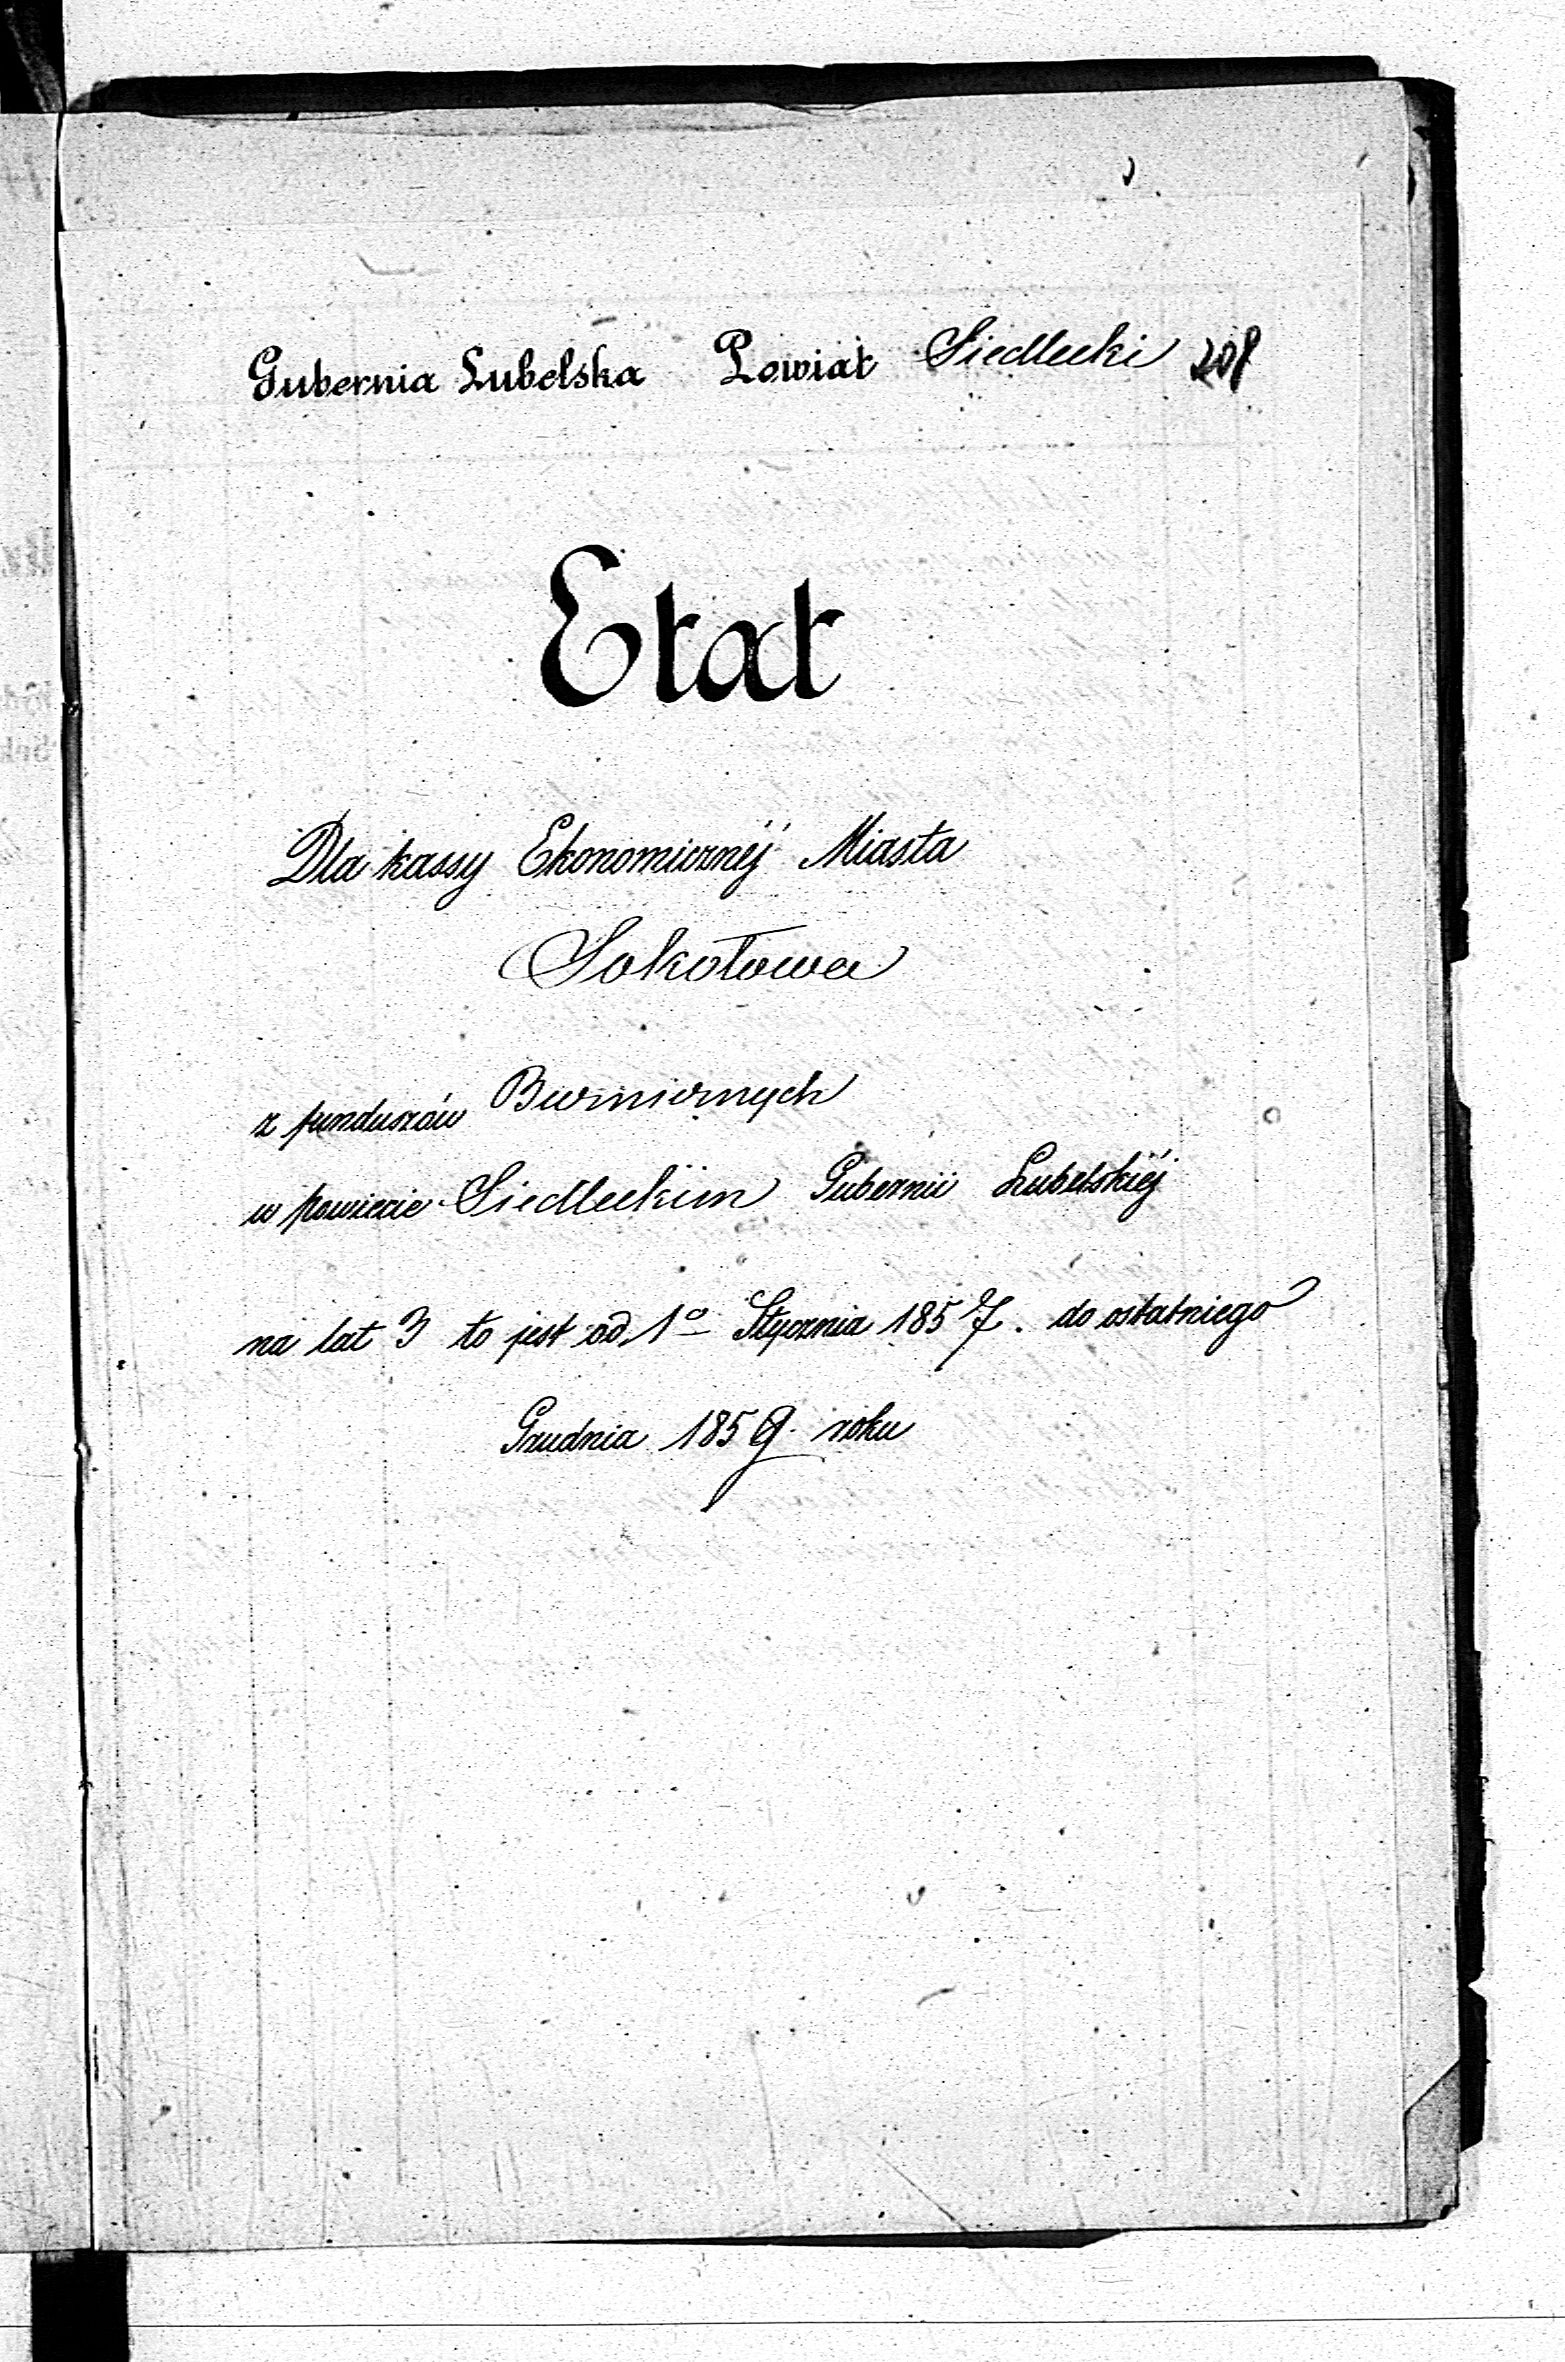 Gubernia Lubelska Powiat Siedlecki 208
Etat
Dla kassy Ekonomicznéj Miasta
Sokołowa
z funduszów Bużnicznych
w powiecie Siedleckim Gubernii Lubelskiéj
na lat 3 to jest od 1º Stycznia 1857. do ostatniego
Grudnia 1859. roku